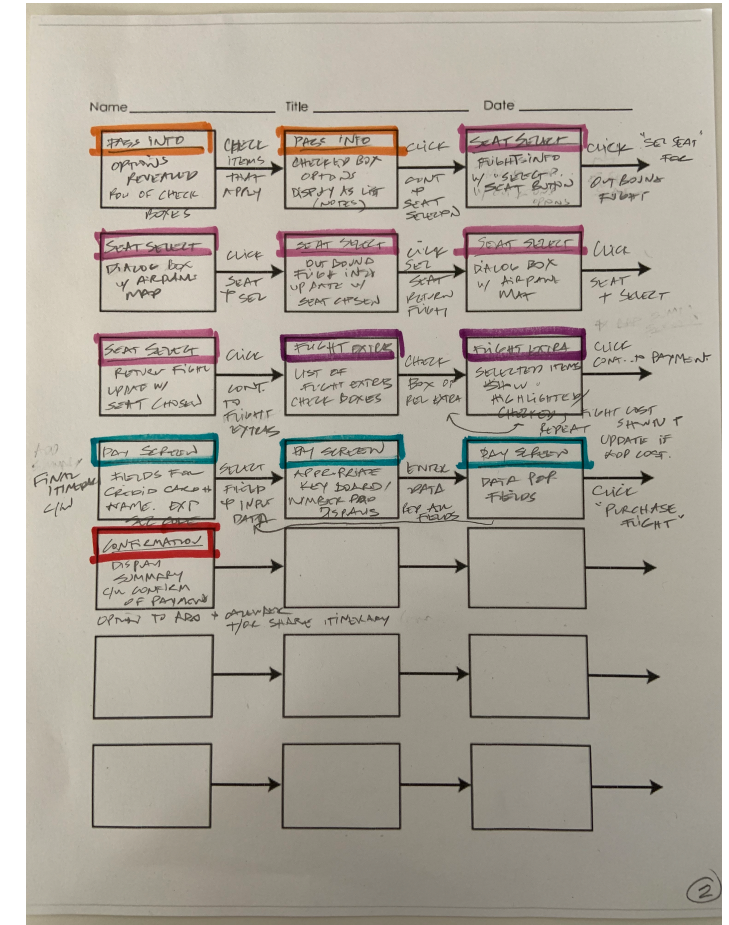 Name Title Date
PASS INFO
OPTIONS
REVEALED
ROW OF CHECK
BOXES
CHECK
ITEMS
THAT
APPLY
PASS INFO
CHECKED BOX
OPTIONS
DISPLAY AS LIST
(NOTES)
CLICK
CONT
SEAT
SELECTION
SEAT SELECT
FLIGHT INFO
W/ "SELECT"
SEAT BUTTON
CLICK "SEL SEAT"
FOR
OUTBOUND
FLIGHT
SEAT SELECT
DIALOG BOX
W/ AIRPLANE
MAP
CLICK
SEAT
+ SEL
SEAT SELECT
OUTBOUND
FLIGHT INFO
UPDATE W/
SEAT CHOSEN
CLICK
SEL
SEAT
RETURN
FLIGHT
SEAT SELECT
DIALOG BOX
W/ AIRPLANE
MAP
CLICK
SEAT
+ SELECT
SEAT SELECT
RETURN FLIGHT
UPDATE W/
SEAT CHOSEN
CLICK
CONT.
TO
FLIGHT
EXTRAS
FLIGHT EXTRAS
LIST OF
FLIGHT EXTRAS
CHECK BOXES
CHECK
BOX OF
REL EXTRA
FLIGHT EXTRA
SELECTED ITEMS
SHOW
HIGHLIGHTED/
CHECKED,
REPEAT
FLIGHT COST
SHOWN +
UPDATE IF
COST.
CLICK
CONT... TO PAYMENT
FINAL
ITINERARY
PAY SCREEN
FIELDS FOR
CREDIT CARD #
NAME. EXP
SEC CODE
SELECT
FIELD
+ INPUT
DATA
PAY SCREEN
APPROPRIATE
KEYBOARD/
NUMBER PAD
DISPLAYS
ENTER
DATA
FIELDS
PAY SCREEN
DATA PER
FIELDS
CLICK
"PURCHASE
FLIGHT"
CONFIRMATION
DISPLAY
SUMMARY
C/W CONFIRM
OF PAYMENT
OPTION TO ADD + CALENDAR
+/OR SHARE ITINERARY
2